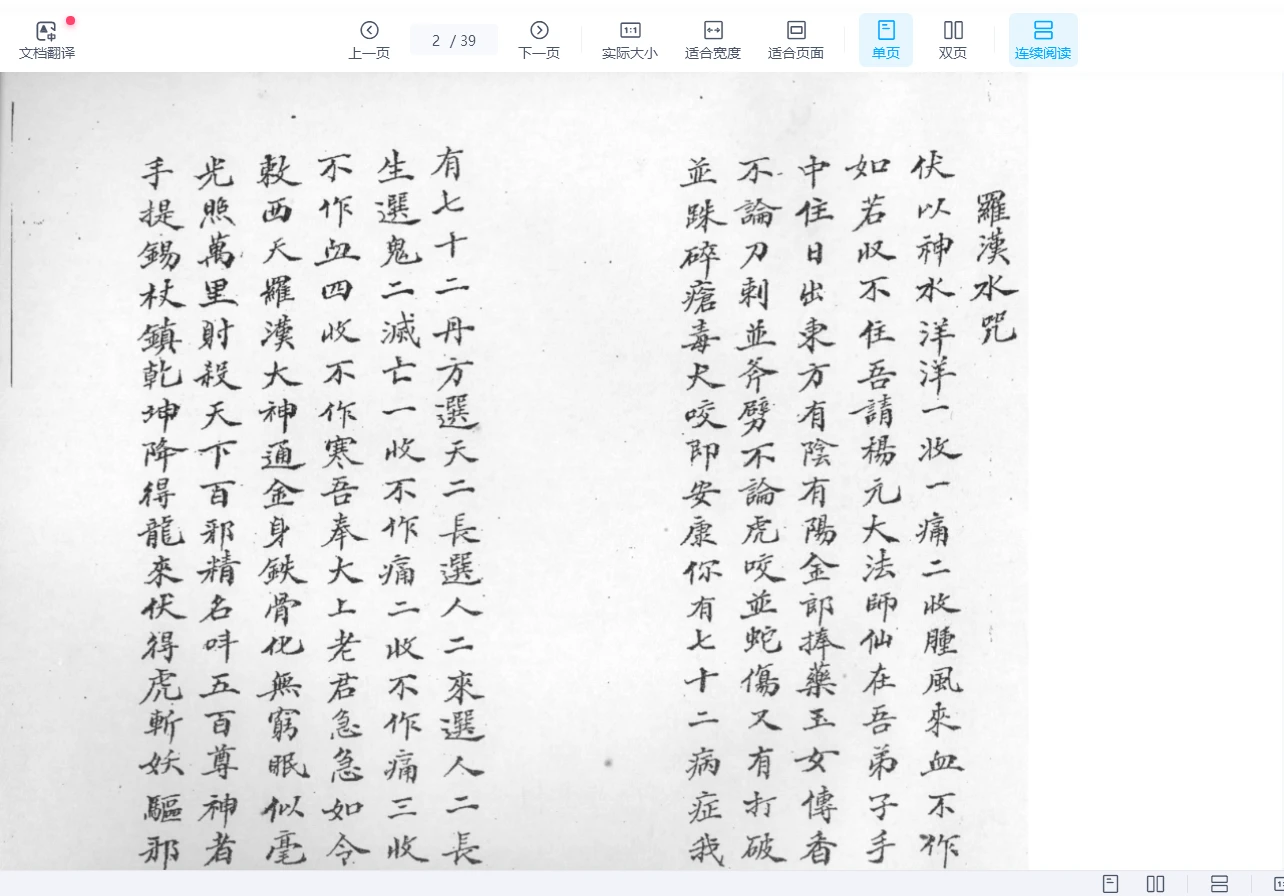 文档翻译
上一页
2 / 39
下一页
1:1
实际大小
适合宽度
适合页面
单页
双页
连续阅读
羅漢水咒
伏以神水洋洋一收一痛二收腫風來血不作
如若收不住吾請楊元大法師仙在吾弟子手
中住日出東方有陰有陽金郎捧藥玉女傳香
不論刀剌並斧劈不論虎咬並蛇傷又有打破
並跦碎瘡毒犬咬即安康你有七十二病症我
有七十二丹方選天二長選人二來選人二長
生選鬼二滅亡一收不作痛二收不作痛三收
不作血四收不作寒吾奉大上老君急急如令
敕西天羅漢大神通金身鉄骨化無窮眠似毫
光照萬里射殺天下百邪精名吽五百尊神者
手提錫杖鎮乾坤降得龍來伏得虎斬妖驅邪